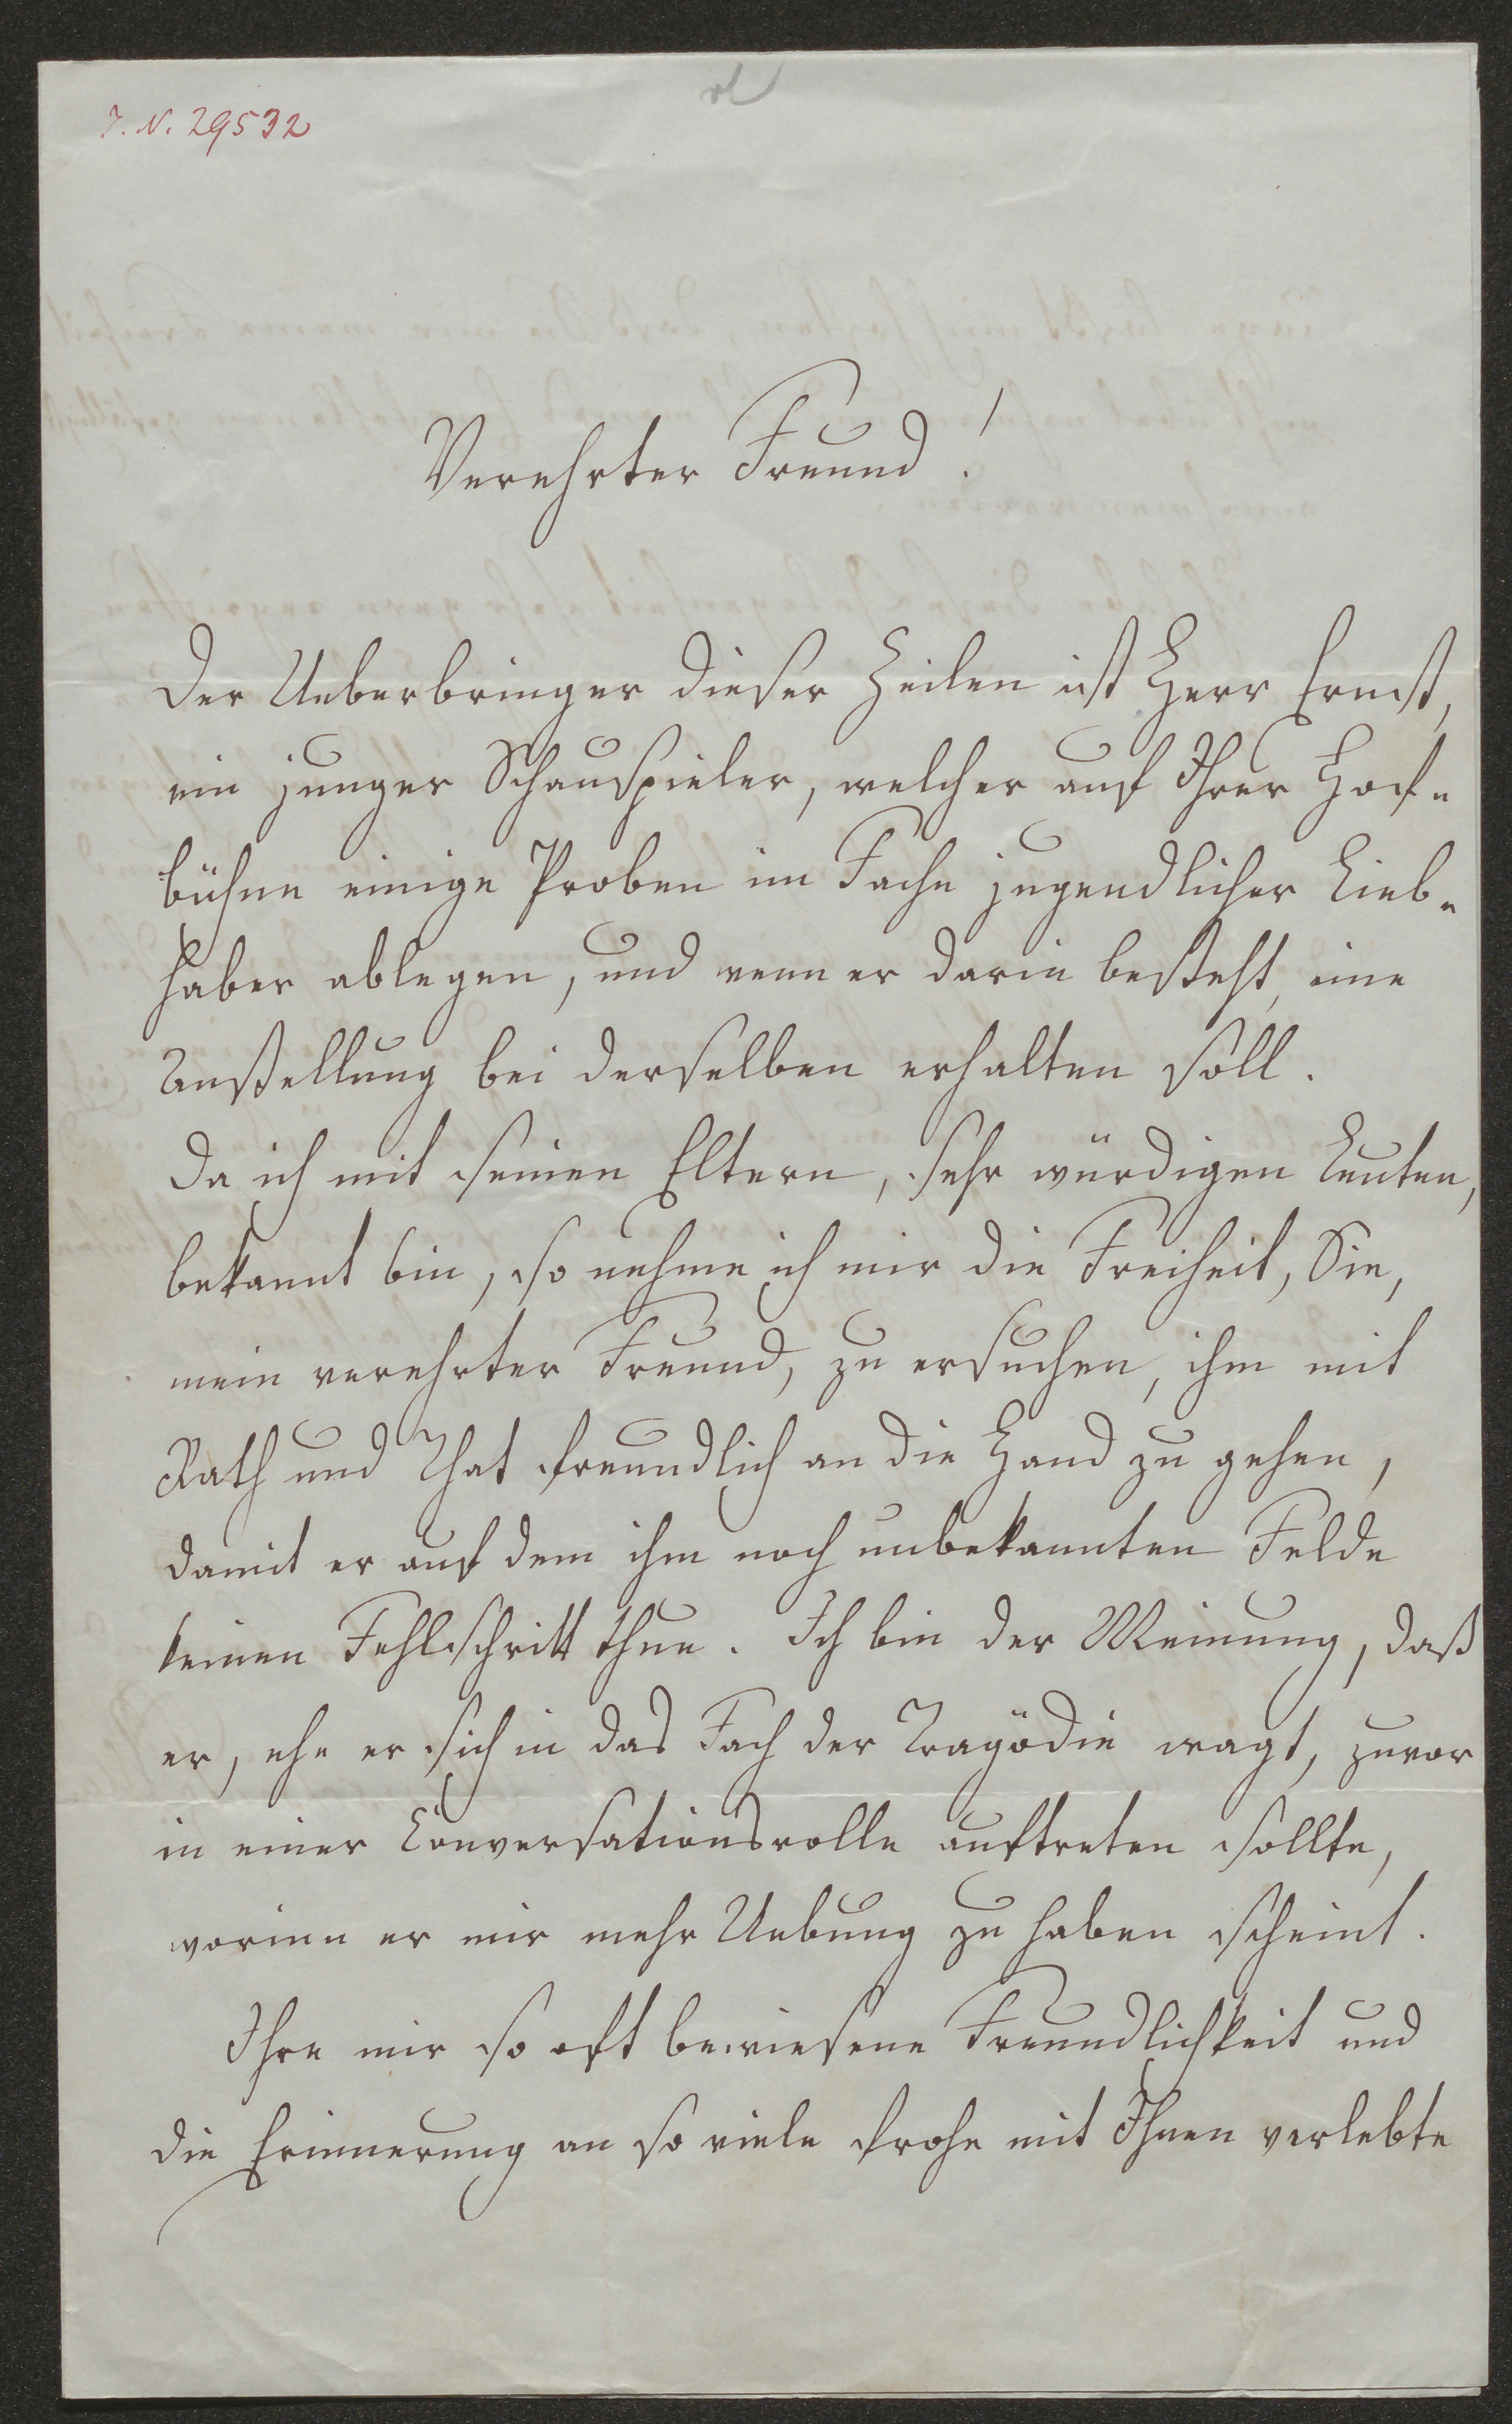 I. N. 29532
Verehrter Freund!
Der Ueberbringer dieser Zeilen ist Herr Ernst,
ein junger Schauspieler, welcher auf Ihrer Hof-
bühne einige Proben im Fache jugendlicher Lieb-
haber ablegen, und wenn er darin besteht, eine
Anstellung bei derselben erhalten soll.
Da ich mit seinen Eltern, sehr würdigen Leuten,
bekannt bin, so nehme ich mir die Freiheit, Sie,
mein verehrter Freund, zu ersuchen, ihm mit
Rath und That freundlich an die Hand zu gehen,
damit er auf dem ihm noch unbekannten Felde
keinen Fehlschritt thue. Ich bin der Meinung, daß
er, ehe er sich in das Fach der Tragödie wagt, zuvor
in einer Conversationsrolle auftreten sollte,
worinn er mir mehr Uebung zu haben scheint.
Ihre mir so oft bewiesene Freundlichkeit und
die Erinnerung an so viele frohe mit Ihnen verlebte